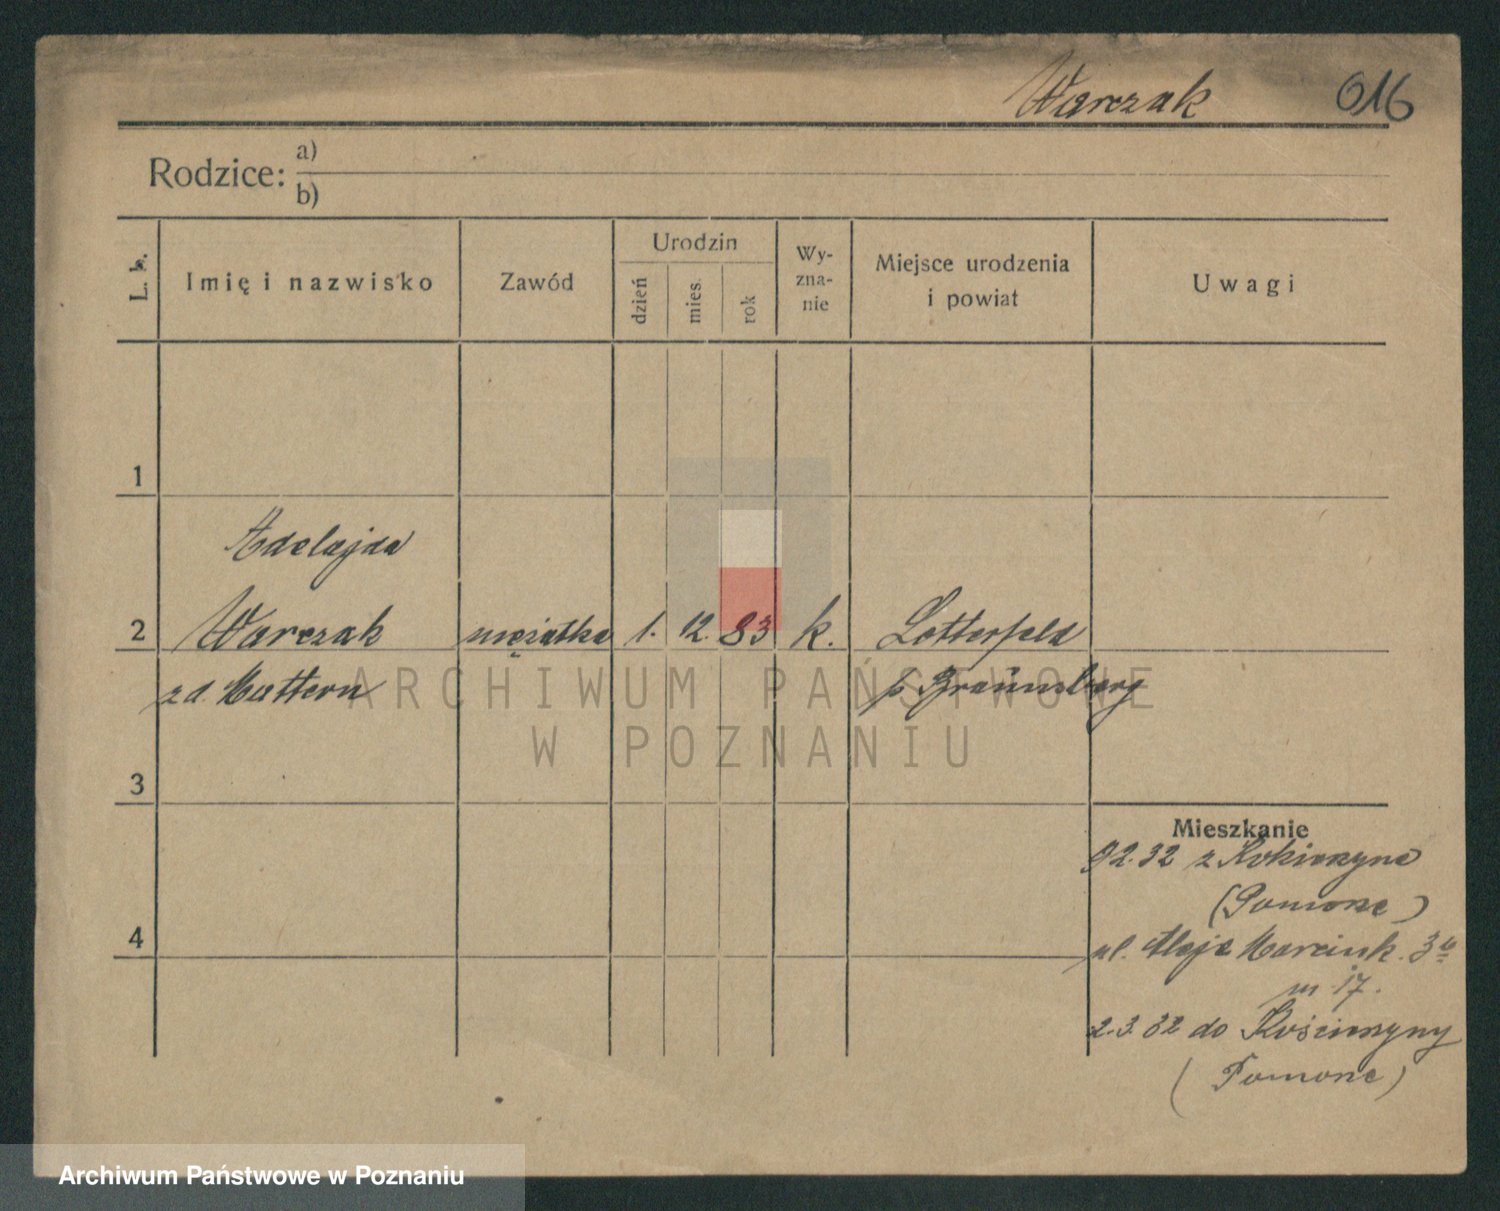 Warczak 016
Rodzice: a)
b)
L. b. Imię i nazwisko Zawód Urodzin dzień mies. rok Wy-zna-nie Miejsce urodzenia i powiat Uwagi
1
Adelajda
2 Warczak mężatka 1. 12. 83 k. Lotterfeld
zd. Mattern p. Braunsberg
ARCHIWUM PAŃSTWOWE
W POZNANIU
3
Mieszkanie
92.32 z
(Pomorze)
4
ul. Aleje Marcink. 3
m 17.
2.3.32 do Kościerzyny
(Pomorze)
Archiwum Państwowe w Poznaniu